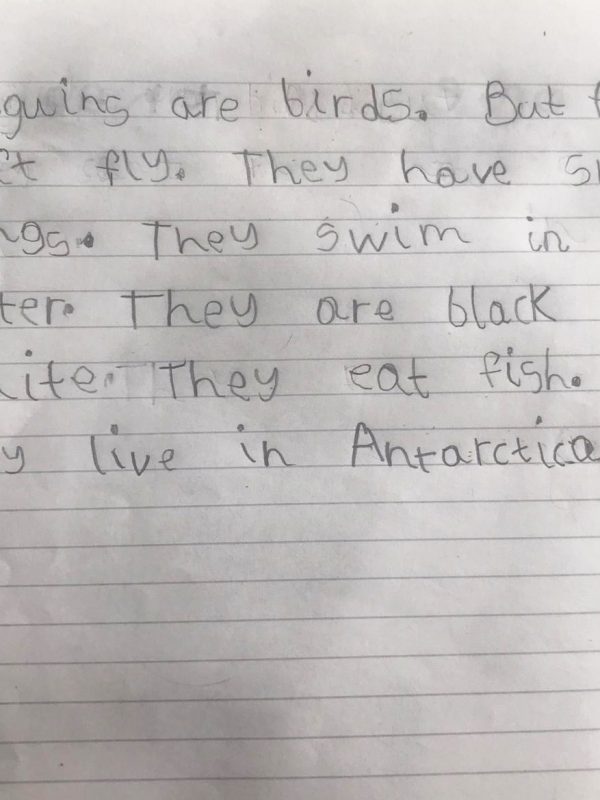 guins are birds. But
't fly. They have
ngs. They swim in
ter. They are black
ite. They eat fish.
y live in Antarctica